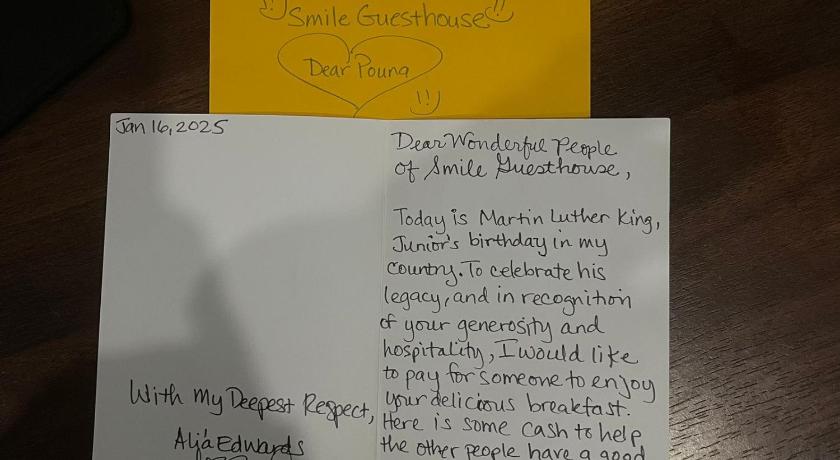 Smile Guesthouse
Dear Pouna
Jan 16, 2025
Dear Wonderful People
of Smile Guesthouse,
Today is Martin Luther King,
Junior's birthday in my
country. To celebrate his
legacy, and in recognition
of your generosity and
hospitality, I would like
to pay for someone to enjoy
your delicious breakfast.
Here is some cash to help
the other people have a good
With My Deepest Respect,
Aljá Edwards